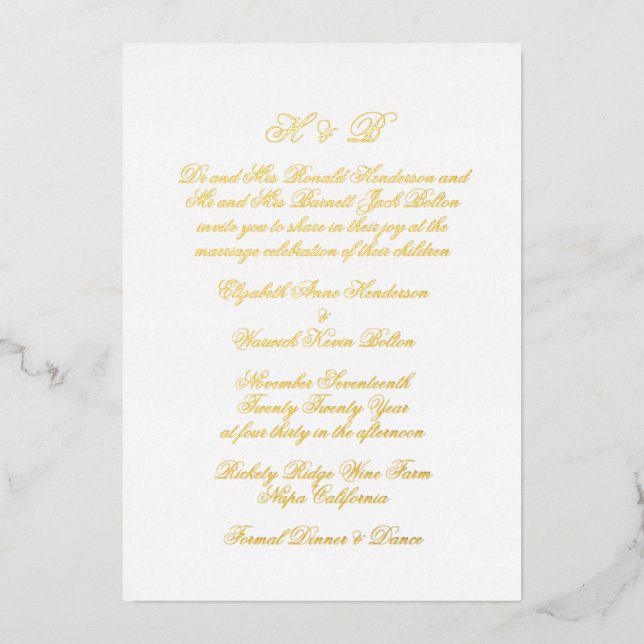 H & B
Dr and Mrs Ronald Henderson and
Mr and Mrs Barnett Jack Bolton
invite you to share in their joy at the
marriage celebration of their children
Elizabeth Anne Henderson
&
Warwick Kevin Bolton
November Seventeenth
Twenty Twenty Year
at four thirty in the afternoon
Rickety Ridge Wine Farm
Napa California
Formal Dinner & Dance